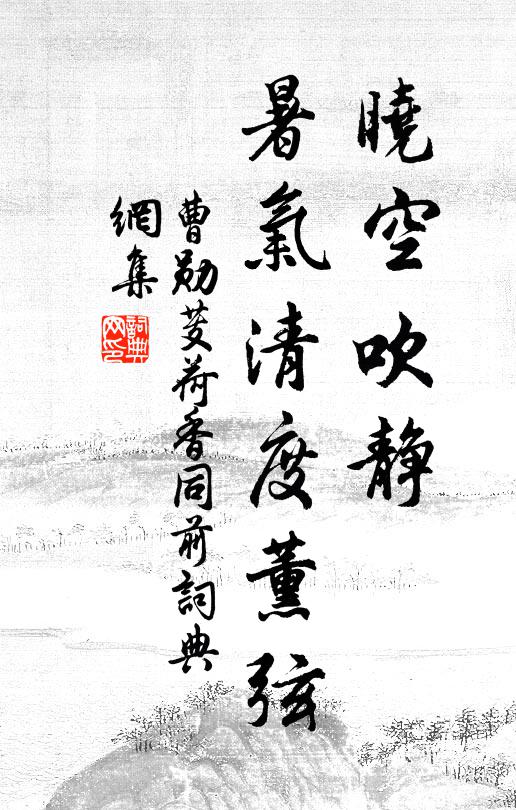 曉空吹静
暑氣清度薰弦
曹勛芰荷香同前詞典
網集
詞典網印